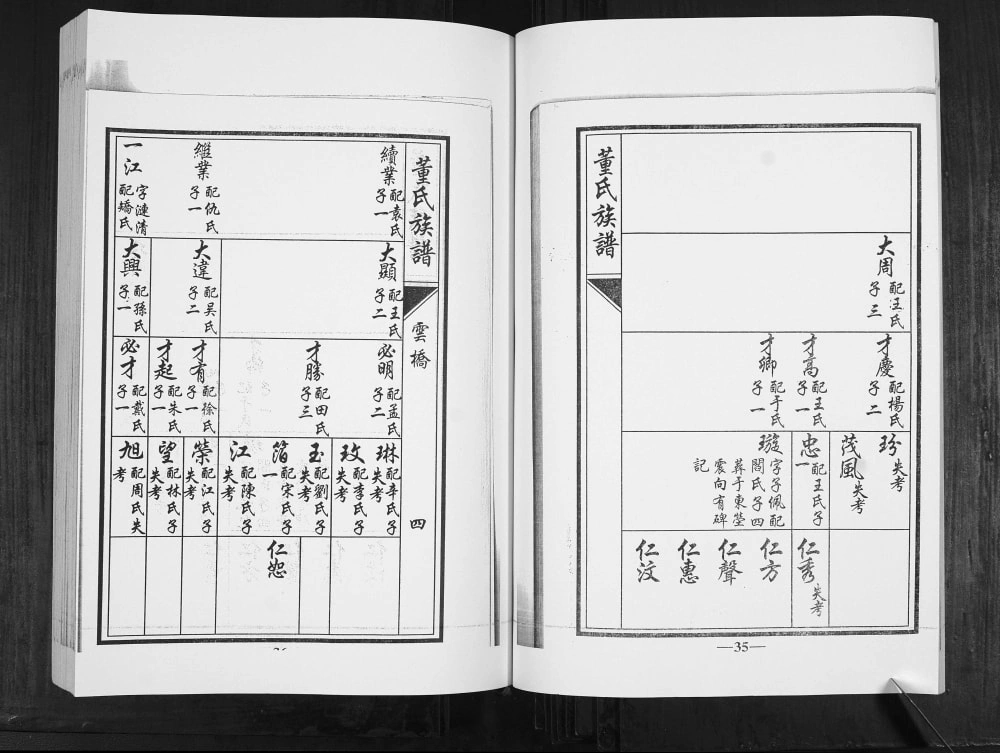 董氏族譜
大周
配汪氏
子三
才慶
配楊氏
子二
才高
配王氏
子一
才卿
配于氏
子一
玢
失考
茂風
失考
忠
配王氏子
一
璇
字子佩配
閻氏子四
葬于東塋
震向有碑
記
仁秀
失考
仁方
仁聲
仁惠
仁汶
—35—
董氏族譜
雲橋
四
續業
配袁氏
子一
繼業
配仇氏
子一
一江
字漣清
配矯氏
大顯
配王氏
子二
大違
配吴氏
子二
大興
配孫氏
子一
必明
配孟氏
子二
才勝
配田氏
子三
才有
配徐氏
子一
才起
配朱氏
子一
必才
配戴氏
子一
琳
配辛氏子
失考
玫
配李氏子
失考
玉
配劉氏子
失考
箔
配宋氏子
一
江
配陳氏子
失考
榮
配江氏子
失考
望
配林氏子
失考
旭
配周氏失
考
仁恕